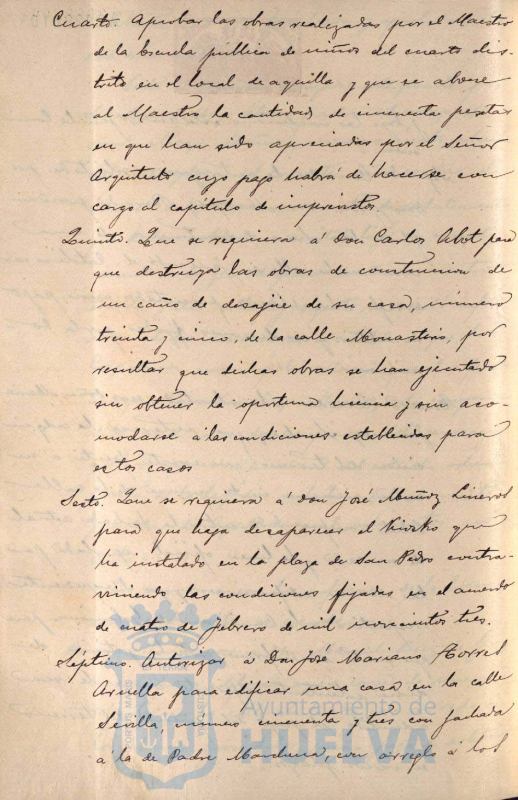 Cuarto. Aprobar las obras realizadas por el Maestro
de la Escuela pública de niños del cuarto dis-
trito en el local de aquilla y que se abone
al Maestro la cantidad de cincuenta pesetas
en que han sido apreciadas por el Señor
Arquitecto cuyo pago habrá de hacerse con
cargo al capítulo de imprevistos.
Quinto. Que se requiera á Don Carlos Albot para
que destruya las obras de construccion de
un caño de desagüe de su casa, número
treinta y cinco, de la calle Monasterio, por
resultar que dichas obras se han ejecutado
sin obtener la oportuna licencia y sin aco-
modarse á las condiciones establecidas para
estos casos
Sesto. Que se requiera á Don José Muñoz Lineros
para que haga desaparecer el Kiosko que
ha instalado en la plaza de San Pedro contra-
viniendo las condiciones fijadas en el acuerdo
de cuatro de Febrero de mil novecientos tres.
Séptimo. Autorizar á Don José Mariano Torres
para edificar una casa en la calle
Sevilla, número cincuenta y tres con fachada
á la de Padre Marchena, con arreglo á los
Ayuntamiento de
HUELVA